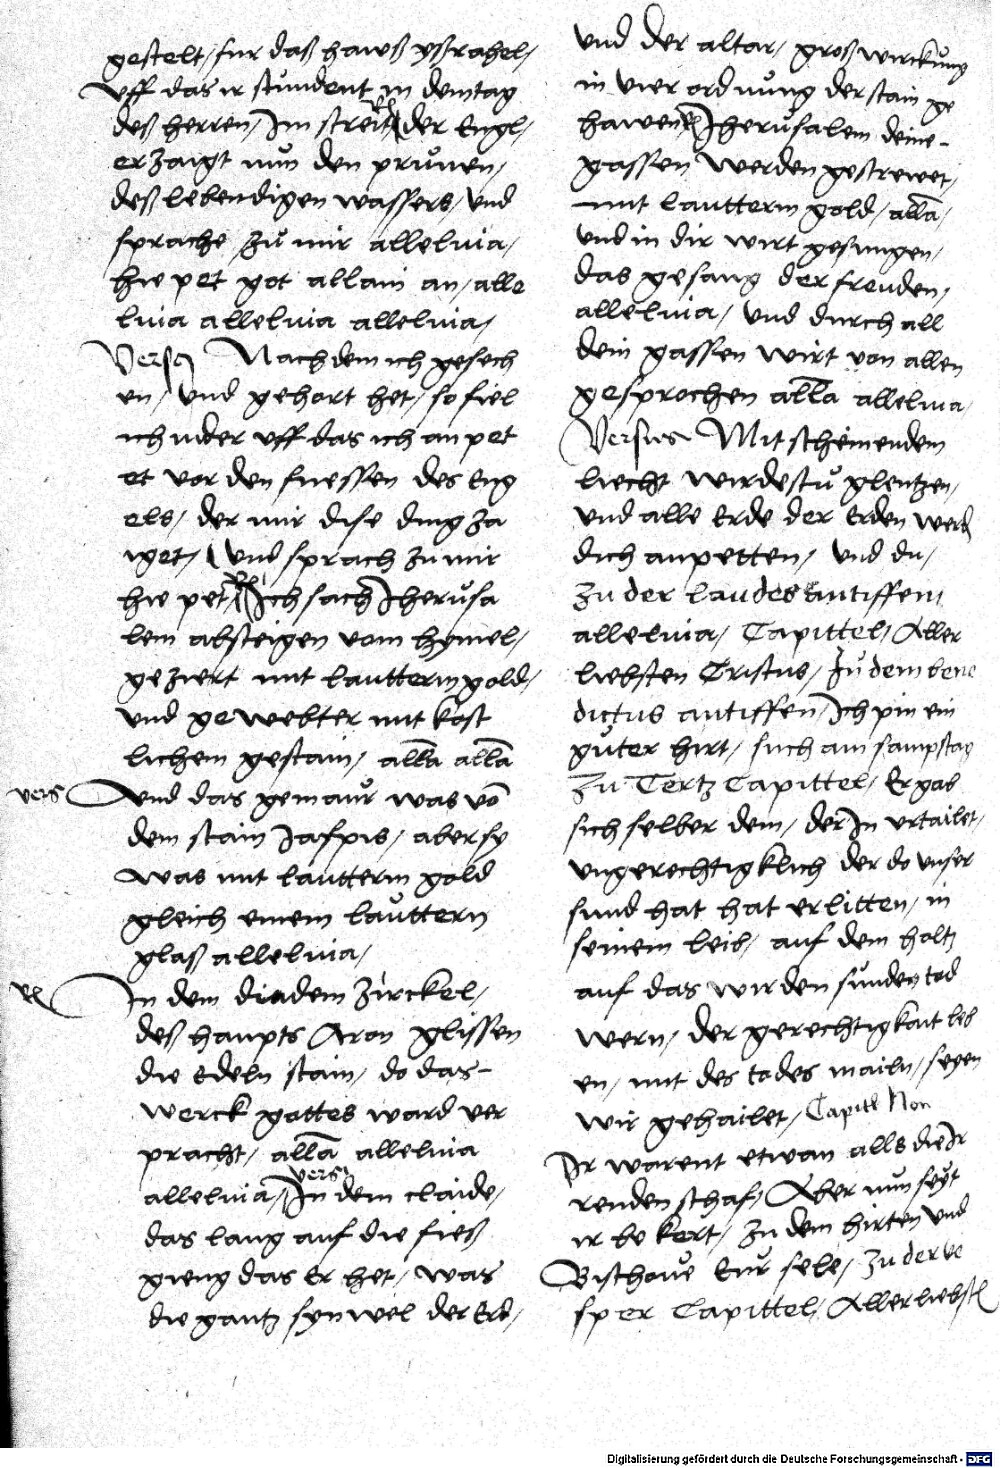 gestelt, fur daß hawß ysrahel,
Uff das ir stundent in dem tag
deß herren, Im streit Rx der Engl,
er zaigt mir den prunen,
deß lebendigen wassers, und
sprache zu mir alleluia,
hie pet got allain an, alle
luia alleluia alleluia,
Verse Nach dem ich gesech
en, und gehort het, so fiel
ich nider uff das ich an pet
et vor den fuessen des Eng
els, der mir dise ding za
iget, Und sprach zu mir
hie pet Rx Ich sach Jherusa
lem absteigen vom hymel,
geziert mit lautterm gold,
und gewebter mit kost
lichem gestain, alla alla
vers Und das gemaur was vo
dem stain Jaspis, aber sy
was mit lautterm gold
gleich einem lauttern
glaß alleluia,
Rx In dem diadem Zirckel,
deß haupts Aron glissen
die Edeln stain, do das
werck gottes ward ver
pracht, alla alleluia
vers
alleluia, In dem claide,
das lang auf die fieß
gieng das Er het, was
die gantz synwel der Erd,
und der altar, groß wirckung
in vier ordnung der stain ge
hawen Rx Jherusalem deine
gassen werden gestrewet,
mit lautterm gold, alla,
und in dir wirt gesungen,
das gesang der freuden,
alleluia, und durch all
dein gassen wirt von allen
gesprochen alla alleluia,
Versus Mit scheinendem
liecht wirdestu glentzen,
und alle Erde der Erden werd
dich anpetten, und du,
Zu der laudes Antiffen,
alleluia, Capittel, Aller
liebsten Cristus, Zu dem bene
dictus antiffen, Ich pin ein
guter hirt, such am sampstag
Zu Tertz Capittel, Er gab
sich selber dem, der In urtailet,
ungerechtigklich der do unser
sund hat hat erlitten, in
seinem leib, auf dem holtz
auf das wir den sunden tod
wern, der gerechtigkait leb
en, mit des todes mailn, seyen
wir gehailet, Capitl Non
Ir warent etwan alls die Ir
renden schaf, Aber nun seyt
ir bekert, Zu dem hirten und
Bischove Eur sele, Zu der ve
sper Capittel, Allerliebst
Digitalisierung gefördert durch die Deutsche Forschungsgemeinschaft - DFG